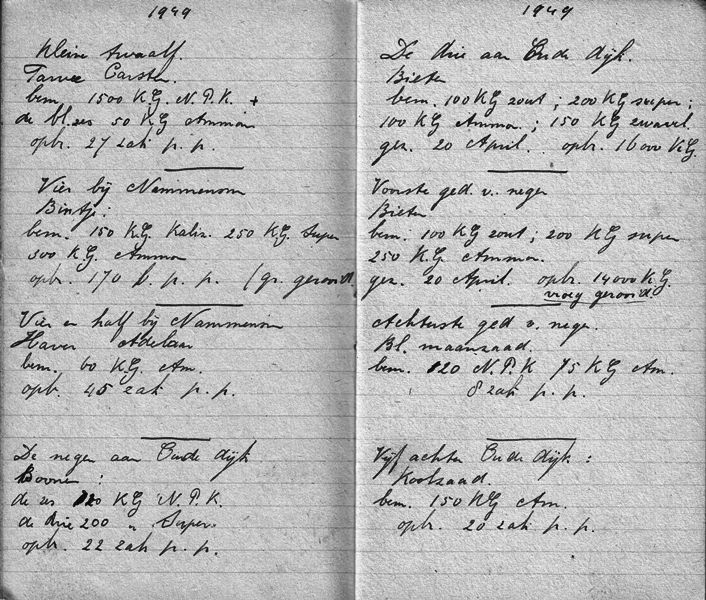 1949
Kleine twaalf.
Tarwe Carsten.
bem. 1500 KG. N.P.K. +
de bl. zes 50 KG Ammon
opbr. 27 zak p.p.
Vier bij Nammenom
Bintje:
bem. 150 KG. Kaliz. 250 KG. Super
300 KG. Ammon
opbr. 170 b. p.p. (gr. gerooid).
Vier en half bij Nammenom
Haver Adelaar
bem. 60 KG. Am.
opb. 45 zak p.p.
De negen aan Oude dijk
Boonen:
de zes 120 KG N.P.K.
de drie 200 " Super.
opbr. 22 zak p.p.
1949
De drie aan Oude dijk.
Bieten
bem. 100 KG zout; 200 KG super;
100 KG Ammon.; 150 KG zwavel.
gez. 20 April. opbr. 16000 KG.
Voorste ged. v. negen
Bieten
bem: 100 KG zout; 200 KG super
250 KG. Ammon.
gez. 20 April. opbr. 14000 KG.
vroeg gerooid.
Achterste ged v. negen.
Bl. maanzaad.
bem. 120 N.P.K 75 KG Am.
8 zak p.p.
Vijf achter Oude dijk:
Koolzaad.
bem. 150 KG Am.
opbr. 20 zak p.p.